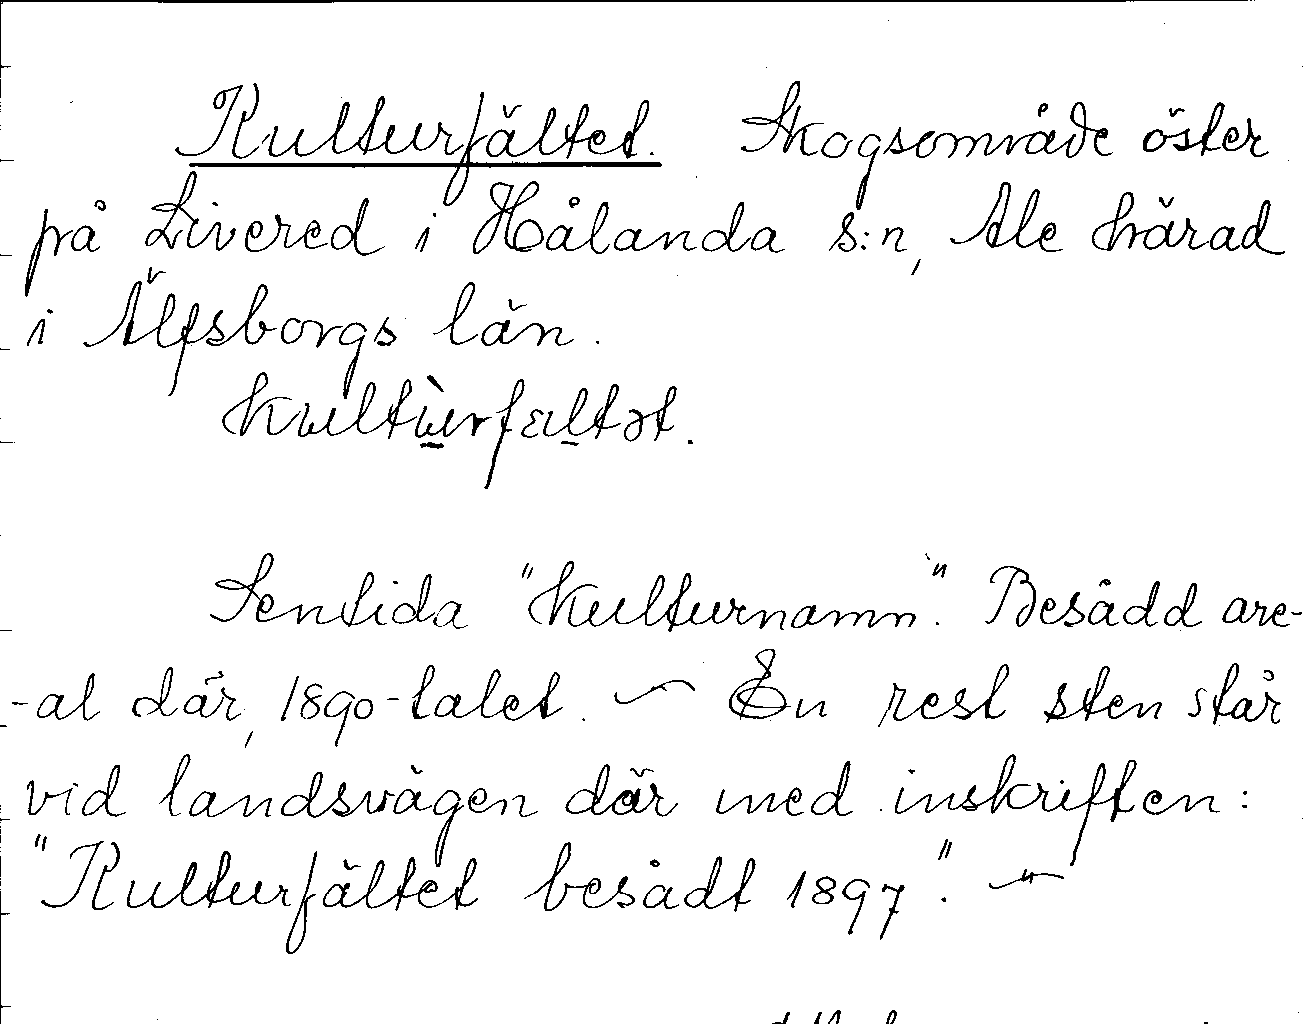 Kulturfältet. Skogsområde öster
på Livered i Hålanda s:n, Ale härad
i Älfsborgs län.
kultùrfæltət.
Sentida "kulturnamn". Besådd are-
-al där, 1890-talet. — En rest sten står
vid landsvägen där med inskriften:
"Kulturfältet besådt 1897". —"—